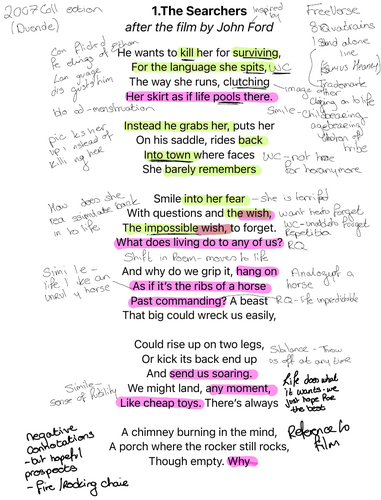 2007 Collection
(Duande)
1.The Searchers
after the film by John Ford
inspired by
Free Verse
8 Quatrains
1 Stand alone line
(Famus Heaney)
Trademark
He wants to kill her for surviving,
For the language she spits, WC
The way she runs, clutching
Her skirt as if life pools there.
feelings of
Language
disgusts him
menstruation
image
clinging on to life
Simile - childbearing
Instead he grabs her, puts her
On his saddle, rides back
Into town where faces
She barely remembers
picks her
up instead of
killing her
WC - not home
for her anymore
tribe
Smile into her fear - she is terrified
With questions and the wish,
The impossible wish, to forget.
What does living do to any of us? RQ
How does she
reassimilate back
into life
want her to forget
WC - wants to forget
Repetition
Shift in Poem - moves to life
And why do we grip it, hang on
As if it's the ribs of a horse
Past commanding? A beast
That big could wreck us easily,
Simile -
life like an
unruly horse
Analogy of a
horse
RQ - life unpredictable
Could rise up on two legs,
Or kick its back end up
And send us soaring.
We might land, any moment,
Like cheap toys. There's always
Sibilance - Throw
us off at any time
Simile -
sense of futility
Life does what
it wants - we
just hope for
the best
A chimney burning in the mind,
A porch where the rocker still rocks,
Though empty. Why
negative
connotations
- but hopeful
prospects
- Fire/Rocking chair
Reference to
film